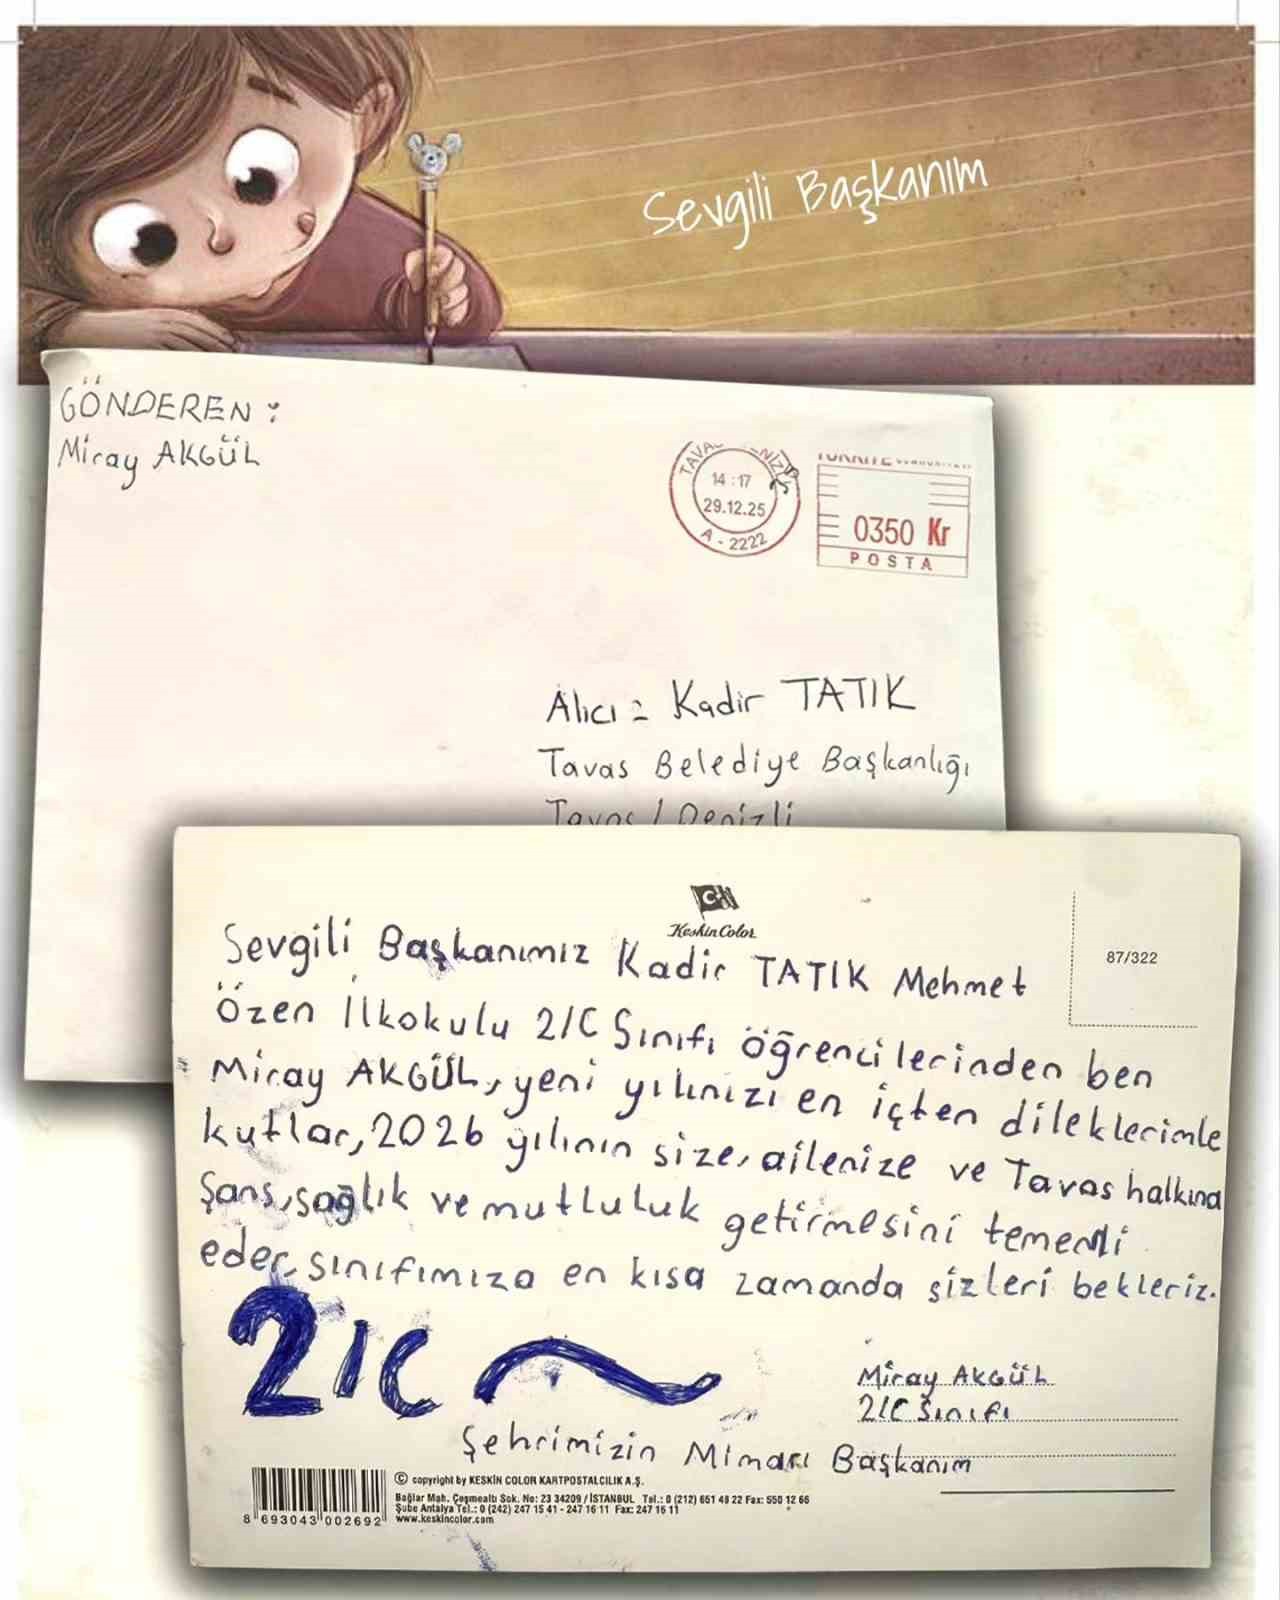 Sevgili Başkanım
GÖNDEREN:
Miray AKGÜL
14:17
29.12.25
A - 2222
0350 Kr
POSTA
Alıcı = Kadir TATIK
Tavas Belediye Başkanlığı
Tavas / Denizli
Keskin Color
87/322
Sevgili Başkanımız Kadir TATIK Mehmet
Özen İlkokulu 2/C Sınıfı öğrencilerinden ben
Miray AKGÜL, yeni yılınızı en içten dileklerimle
kutlar, 2026 yılının size, ailenize ve Tavas halkına
Şans, sağlık ve mutluluk getirmesini temenni
eder, sınıfımıza en kısa zamanda sizleri bekleriz.
2/C
Miray AKGÜL
2/C Sınıfı
Şehrimizin Mimarı Başkanım
© copyright by KESKİN COLOR KARTPOSTALCILIK A.Ş.
Bağlar Mah. Çeşmealtı Sok. No: 23 34209 / İSTANBUL Tel.: 0 (212) 651 48 22 Fax: 550 12 66
Şube Antalya Tel.: 0 (242) 247 15 41 - 247 16 11 Fax: 247 16 11
www.keskincolor.com
8 693043 002692